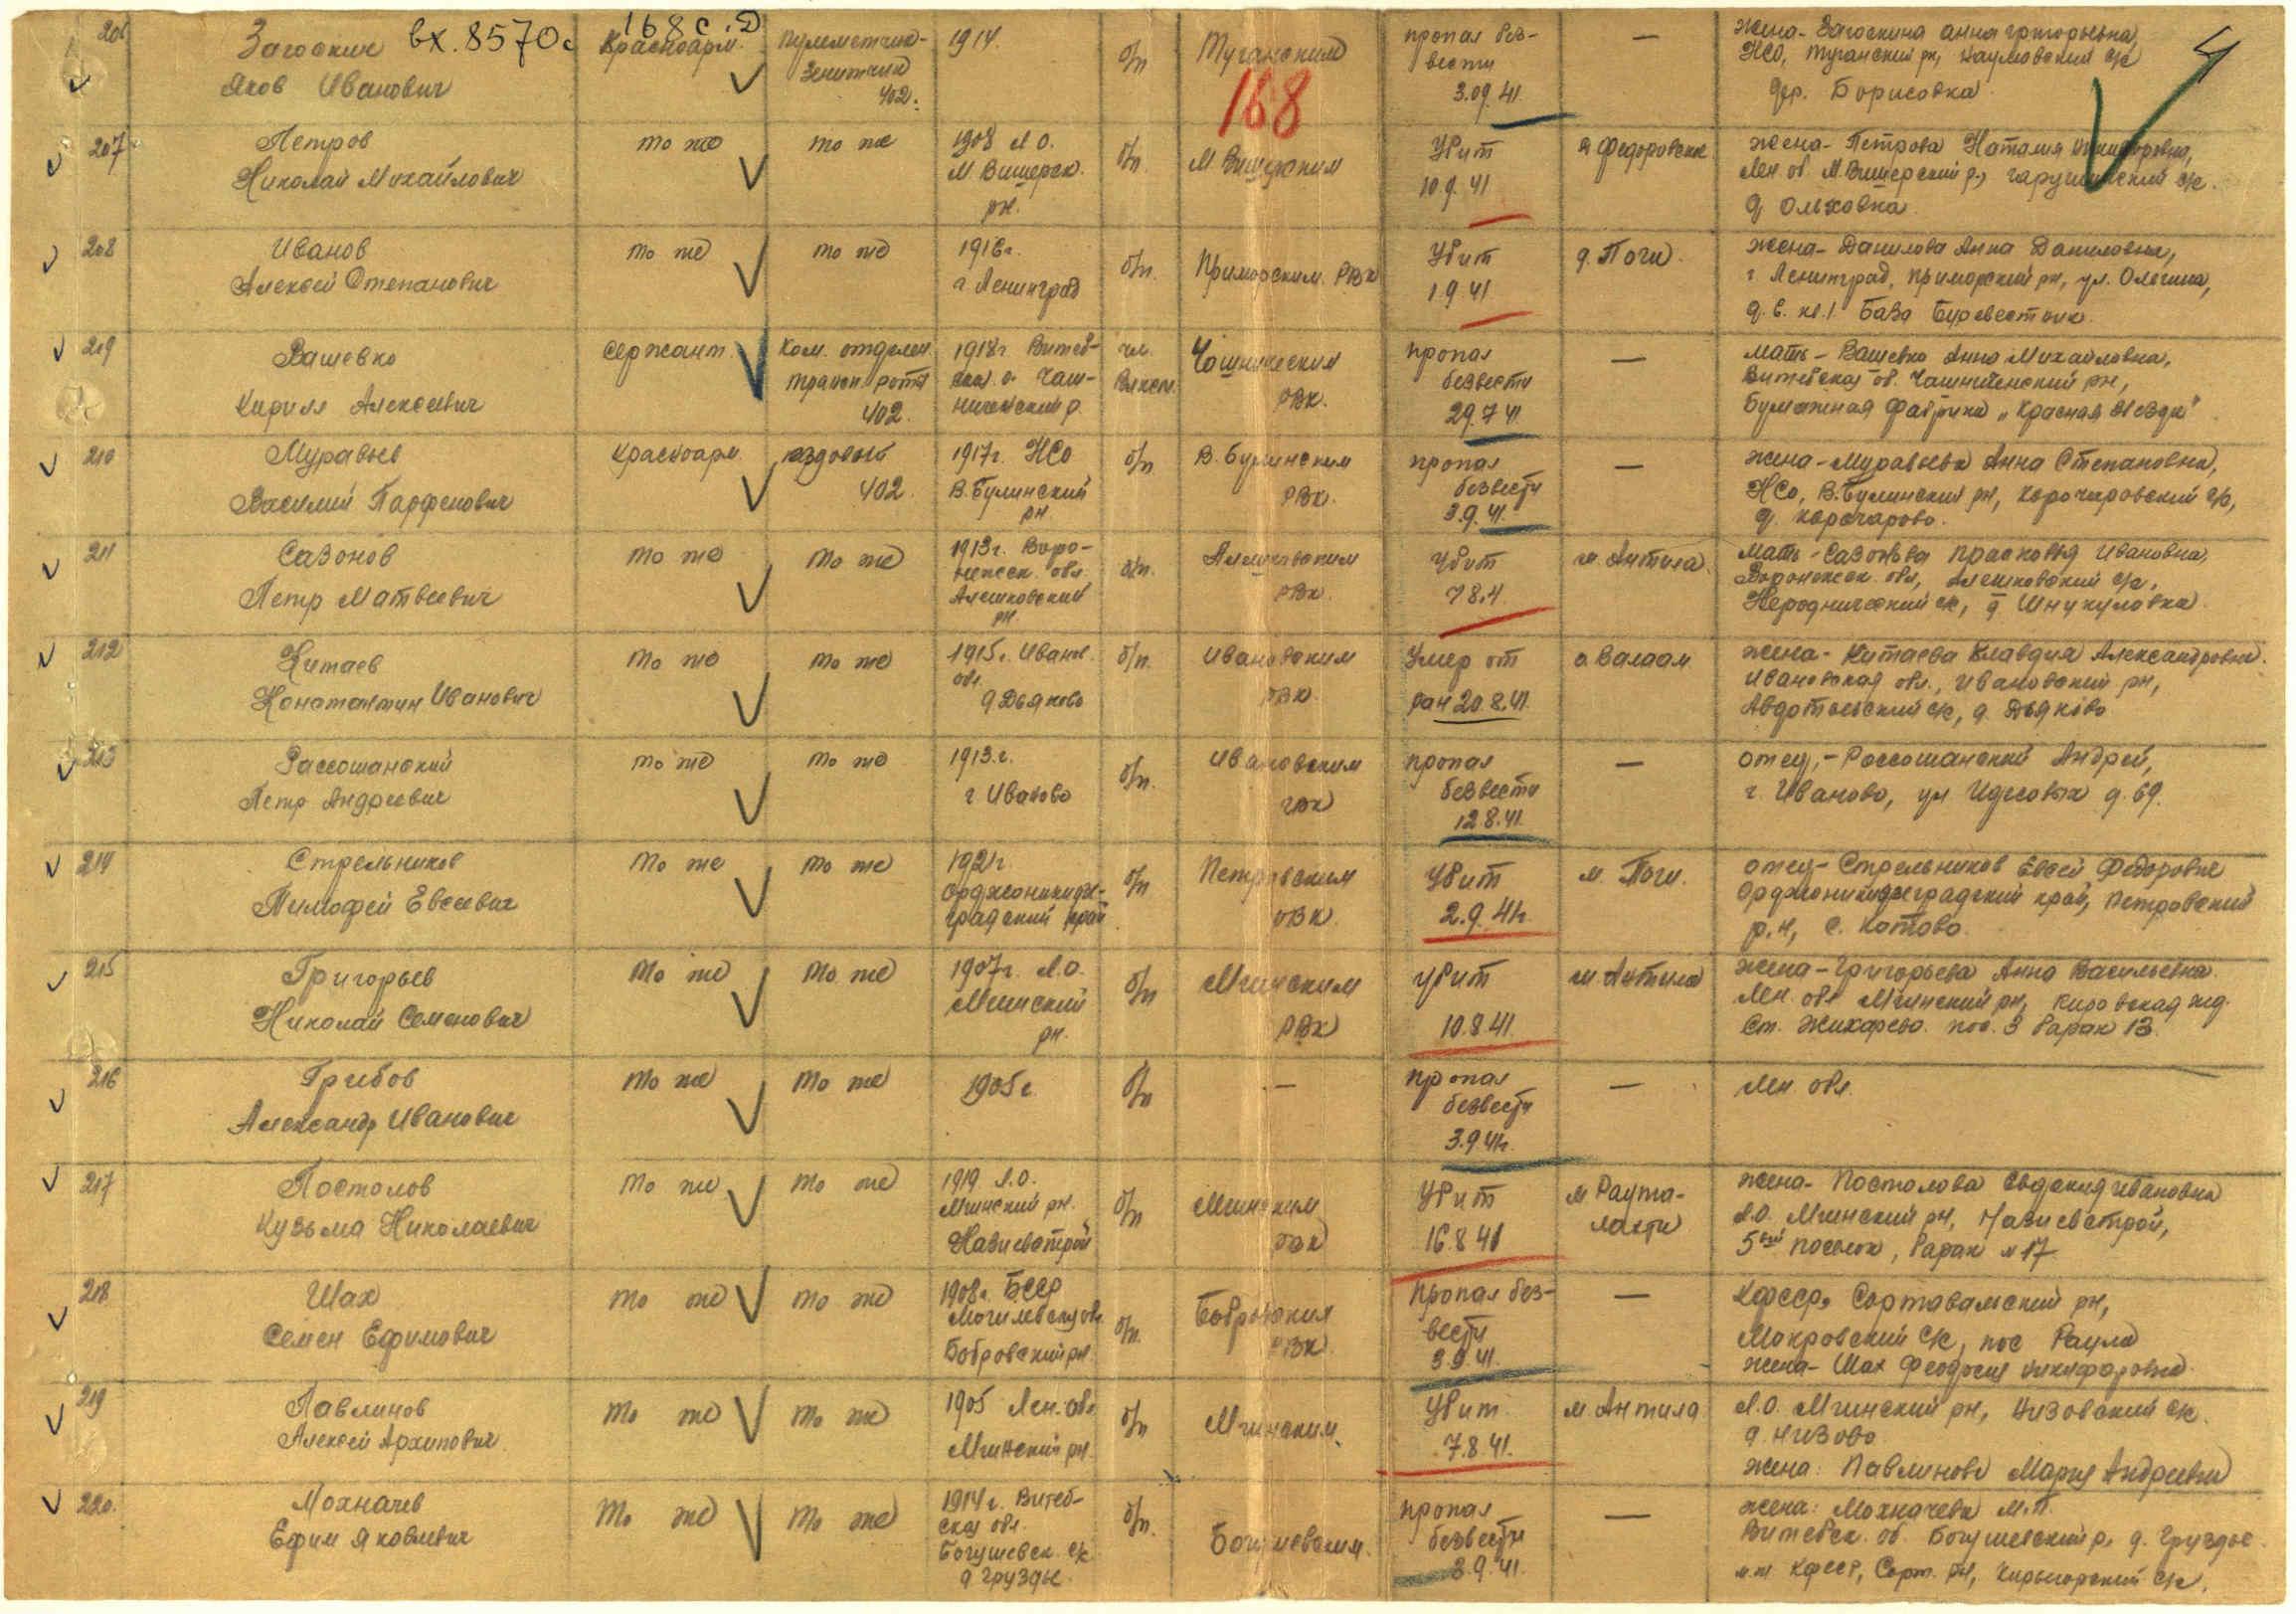 вх. 8570с 168 с.д
168
206 Загоскин Красноарм. пулеметчик- 1914 б/п Туганским пропал без- — жена - Загоскина Анна Григорьевна,
Яков Иванович зенитчик вести НСО, Туганский рн, Наумовский с/с
402. 3.09.41 дер. Борисовка
207 Петров то же то же 1908 Л.О. б/п. М Вишерским Убит д Федоровское жена - Петрова Наталия Никифоровна,
Николай Михайлович М. Вишерск. 10 9. 41 Лен об. М. Вишерский р.,
рн. д Ольховка
208 Иванов то же то же 1916г. б/п. Приморским РВК Убит д. Поги. жена - Данилова Анна Даниловна,
Алексей Степанович г Ленинград 1 9 41 г Ленинград, Приморский рн, ул. Ольгина,
д. 6. кв. 1 База Буревестник
209 Вашевко сержант Ком. отделен 1918г. Витеб- чл. Чашникским пропал — мать - Вашевко Анна Михайловна,
трансп. роты ская о. Чаш- Влксм. РВК. безвести Витебская об. рн,
Кирилл Алексеевич 402. р. 29.7 41 Бумажная фабрика „Красная звезда"
210 Муравьев красноарм. ездовый 1917г. НСО б/п В. Булинским пропал — жена - Муравьева Анна Степановна,
Василий Парфенович 402. В. Булинский РВК. безвести НСО, В. Булинский рн, Корочаровский с/с,
рн 3.9. 41. д. Корочарово.
211 Сазонов то же то же 1913г. Воро- б/п. Алешковским убит м. Антила. мать - Сазонова Прасковья Ивановна,
Петр Матвеевич нежск. обл. РВК. 7 8.4 Воронежск. обл, Алешковский с/с,
Алешковский с/с, д Шнукуловка
рн
212 Китаев то же то же 1915г. Иванов. б/п. Ивановским Умер от о Валаам жена - Китаева Клавдия Александровна.
Константин Иванович обл. РВК. ран 20 8.41. Ивановская обл., Ивановский рн,
д Дьяково с/с, д. Дьяково
213 Рассошанский то же то же 1913.г. б/п. Ивановским пропал — отец, - Россошанский Андрей,
Петр Андреевич г Иваново безвести г. Иваново, ул д. 69.
12 8.41.
214 Стрельников то же то же 1921г б/п Петровским Убит м. Поги. отец - Стрельников Евсей Федорович
Тимофей Евсеевич Орджоникидзе- РВК. 2.9. 41г. Орджоникидзеградский край, Петровский
градский край р.н, с. Котово.
215 Григорьев то же то же 1907г. Л.О. б/п Мгинским убит м. Антила жена - Григорьева Анна Васильевна.
Николай Семенович Мгинский РВК 10.8.41. Лен. обл Мгинский рн, Кировская жд.
рн. ст. Жихарево. пос. 3 барак 13.
216 Грибов то же то же 1905г. б/п — пропал — Лен. обл.
Александр Иванович безвести
3.9 41г.
217 Постолов то же то же 1919 Л.О. б/п Мгинским Убит м Раута- жена - Постолова Евдокия Ивановна
Кузьма Николаевич Мгинский рн. РВК 16.8 41 лахти Л.О. Мгинский рн, Назиевстрой,
Назиевстрой 5ый поселок, барак № 17
218 Шах то же то же 1908г. БССР б/п. Бобровским пропал без- — КФССР, Сортавальский рн,
Семен Ефимович Могилевскую об. РВК вести с/с, пос Раула
Бобровский рн. 3 9.41. жена - Шах Феодосия Никифоровна
219 Павлинов то же то же 1905 Лен. обл б/п Мгинским. Убит. м Антила Л.О. Мгинский рн, Низовский с/с.
Алексей Архипович Мгинский рн. 7.8.41. д. Низово
жена: Павлинова Мария Андреевна
220. Мохначев то же то же 1914г. Витеб- б/п. Богушевским. пропал — жена: Мохначева М.П.
Ефим Яковлевич ская обл. безвести Витебск. об. Богушевский р, д. Груздье.
Богушевск. с/с 3.9. 41. КФССР, Сорт. рн, с/с.
д Груздье.